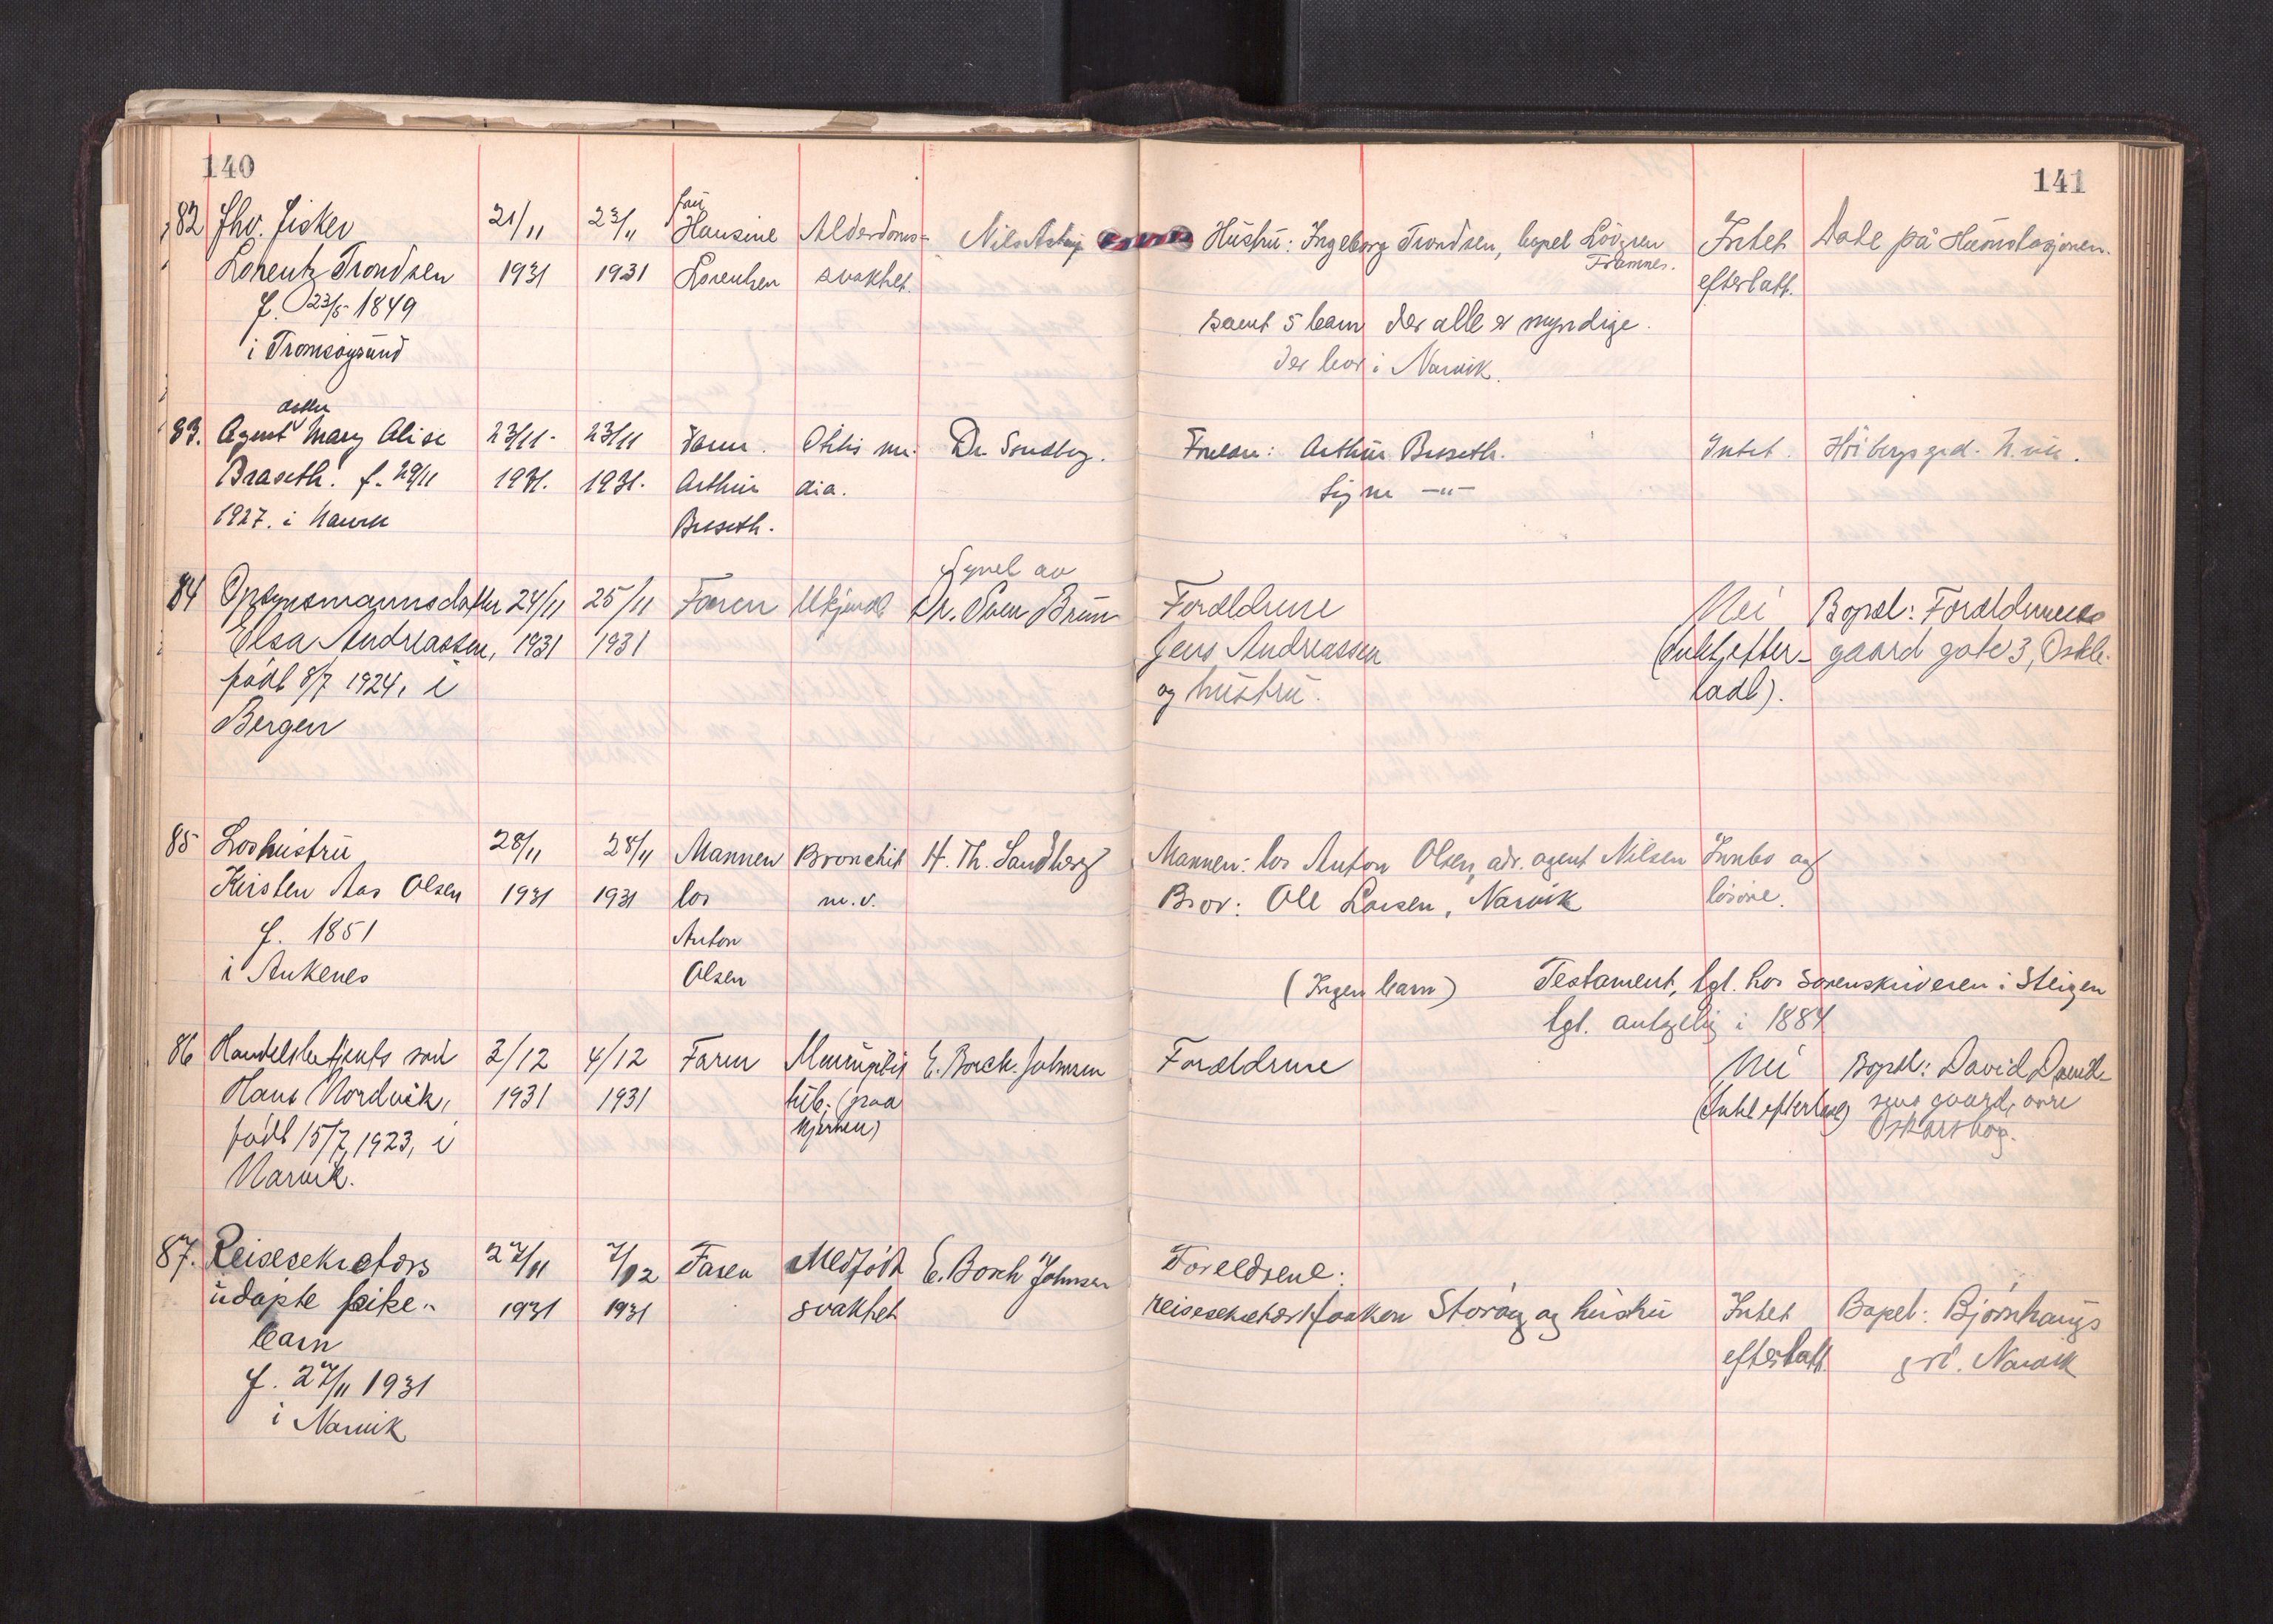 140
141
82 fhv. fisker 21/11 23/11 frú Hansine Alderdoms- Nils Hustrú: Ingeborg Trondsen, bopel Lövgren Framnes. Intet Døde på
Lorentz Trondsen 1931 1931 Lorentzen svakhet. efterlatt.
f. 23/5 1849 samt 5 barn der alle er myndige.
i Tromsøysúnd der bor i Narvik.
datter
83. Agent Mary Alise 23/11- 23/11 Faren. Otitis me- Dr. Sandberg. Foreldre: Arthúr Braseth. Intet. Höibergs grd.
Braseth. f. 29/11 1931. 1931. Arthúr dia. Signe —"—
1927. i Narvik Braseth.
Synet av
84 Opsynsmannsdatter 24/11 25/11 Faren Ukjendt Dr. Sven Brún Foreldrene Nei Bopel:
Elsa Andreassen, 1931 1931 Jens Andreassen (Intet efter- gaard gate 3,
født 8/7 1924, i og hústrú. ladt).
Bergen
85 Loshústrú 28/11 28/11 Mannen Bronchit H. Th. Sandberg Mannen: los Anton Olsen, adr. agent Nilsen Innbo og
Kirsten Aas Olsen 1931 1931 los m.v. Bror: Ole Larsen, Narvik lösöre.
f. 1851 Anton
i Ankenes Olsen (Ingen barn) Testament, tgl. hos Sorenskriveren i Steigen
tgl. antagelig i 1884
86 Handelsbetjents sön 3/12 4/12 Faren Meningitis E. Borch-Johnsen Foreldrene Nei Bopel: David David-
Hans Nordvik, 1931 1931 túb. (paa (Intet efterladt) sens gaard, øvre
født 15/7 1923, i hjernen) Oskarsborg.
Narvik.
87. Reisesekretærs 27/11 7/12 Faren Medfödt E. Borch Johnsen Foreldrene:
údøpte pike- 1931 1931 svakhet reisesekretær Haakon Storöy og hústrú Intet Bopel: Bjørnhaugs
barn efterlatt. grd. Narvik
f. 27/11 1931
i Narvik